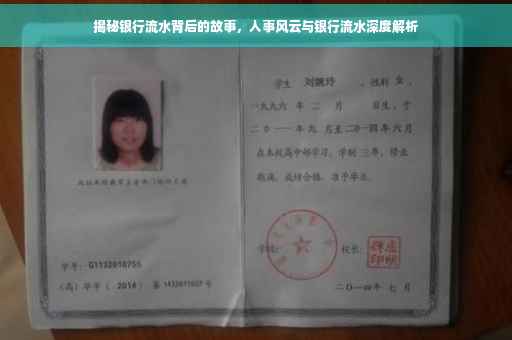 揭秘银行流水背后的故事，人事风云与银行流水深度解析
学生 刘婉玲 ，性别 女 ，
一九九六 年 二 月 日生，于
二〇一一年九 月至二〇一四年 六 月
在本校高中部学习，学制 三年，修业
期满，成绩合格，准予毕业。
学号：G1132010755
（高）毕字（ 2014 ）第 1432011007 号
学校： 校长：
二〇一四年 七 月